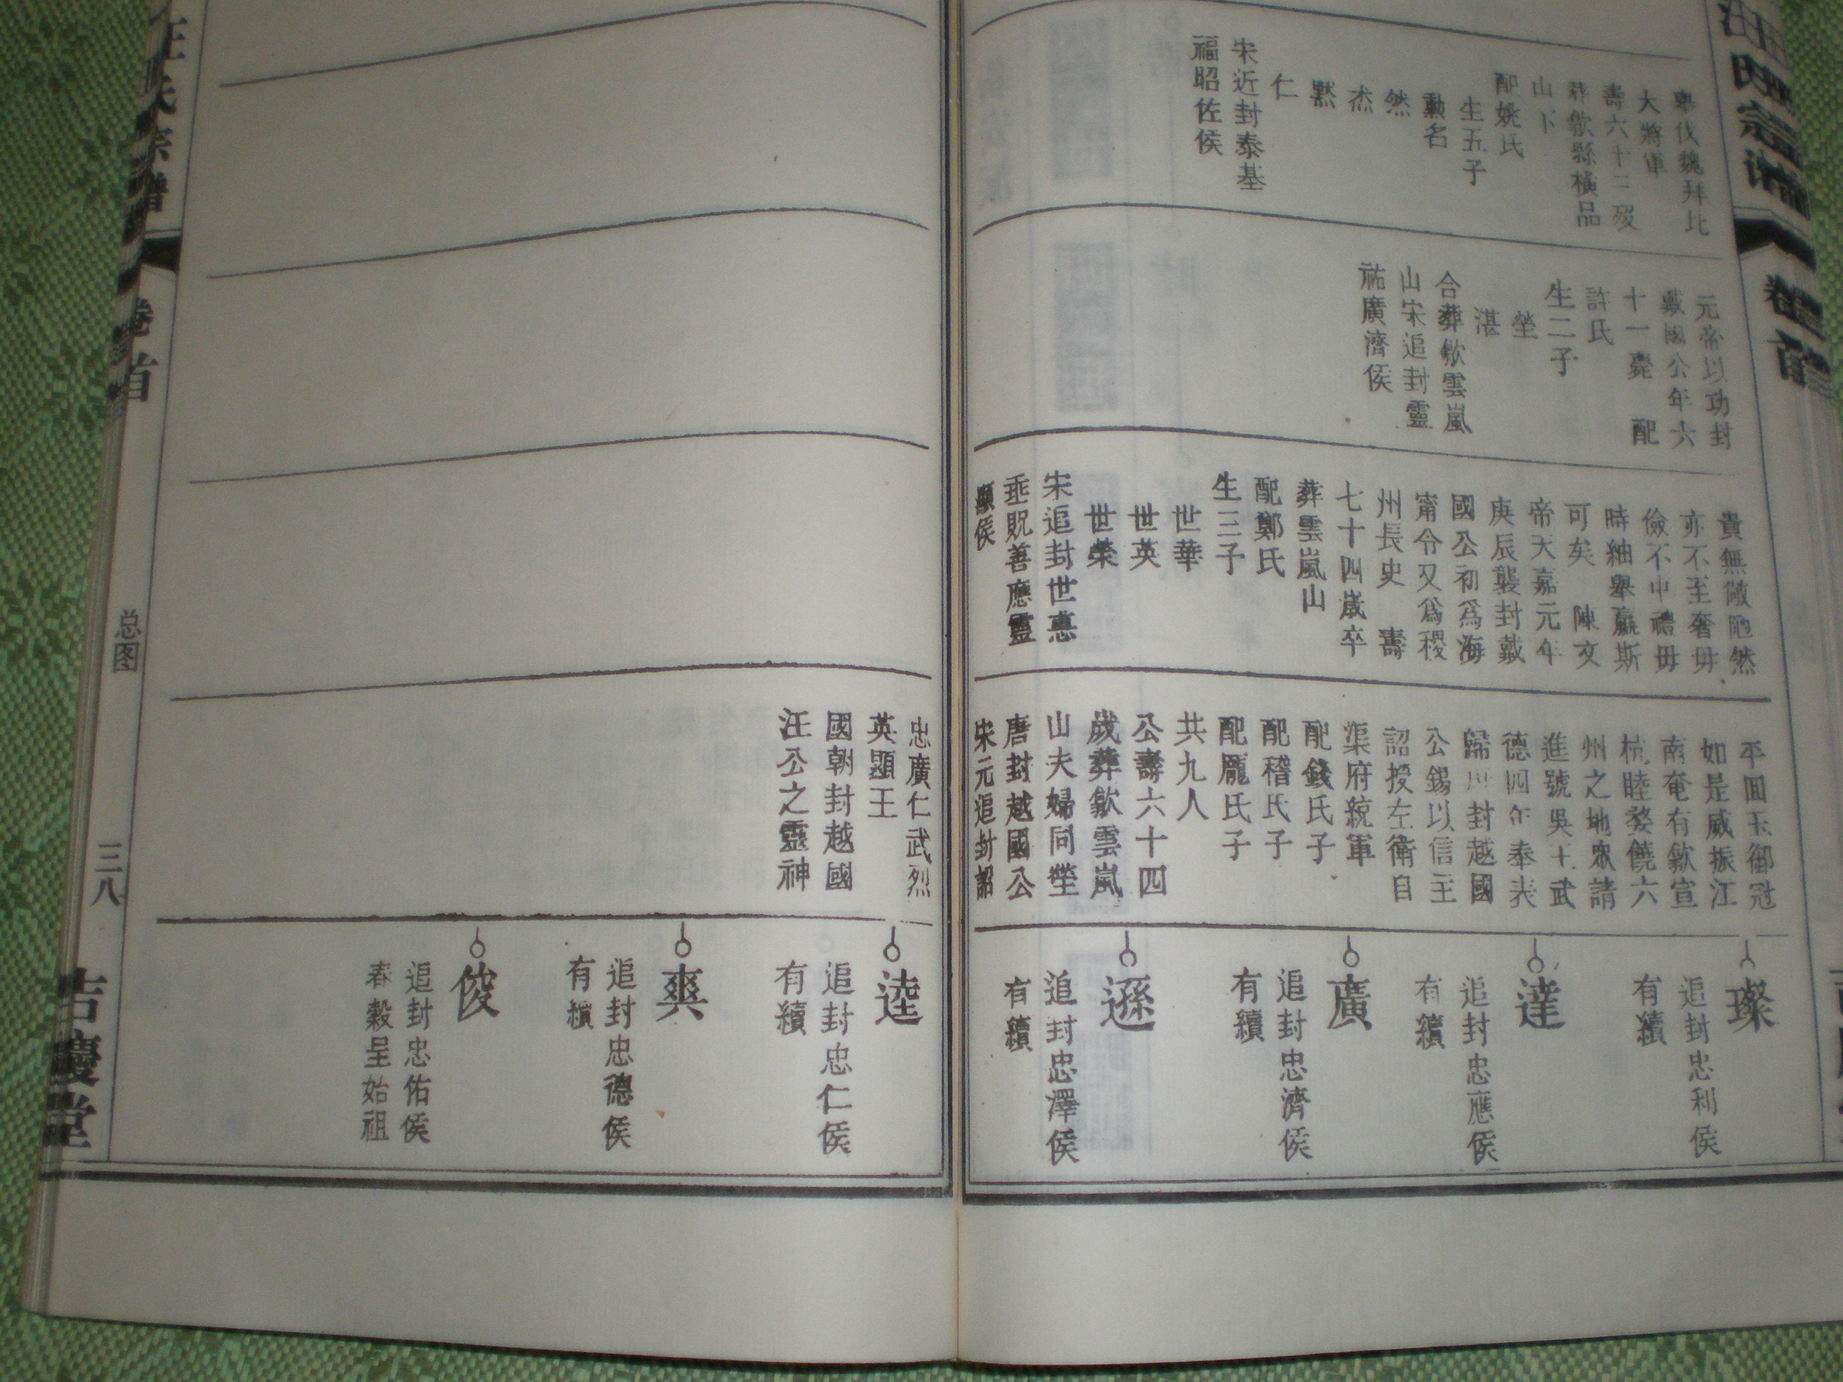 汪氏宗譜
卷首
舉伐魏拜比
大將軍
壽六十三歿
葬歙縣橫品
山下
配姚氏
生五子
勳名
然
杰
黙
仁
宋近封泰基
福昭佐侯
元帝以功封
戴國公年六
十一薨 配
許氏
生二子
塋
湛
合葬歙雲嵐
山宋追封靈
祐廣濟侯
貴無敵陋然
亦不至奢毋
儉不中禮毋
時紬舉贏斯
可矣 陳文
帝天嘉元年
庚辰襲封戴
國公初爲海
甯令又爲稷
州長史 壽
七十四歲卒
葬雲嵐山
配鄭氏
生三子
世華
世英
世榮
宋追封世惠
垂貺善應靈
顯侯
平面玉御冠
如是威振江
南奄有歙宣
杭睦婺饒六
州之地眾請
進號吳王武
德四年奉表
歸 封越國
公錫以信主
詔授左衛自
渠府統軍
配錢氏子
配稽氏子
配龐氏子
共九人
公壽六十四
歲葬歙雲嵐
山夫婦同塋
唐封越國公
宋元追封詔
璨
追封忠利侯
有續
達
追封忠應侯
有續
廣
追封忠濟侯
有續
遜
追封忠澤侯
有續
忠廣仁武烈
英顯王
國朝封越國
汪公之靈神
逵
追封忠仁侯
有續
爽
追封忠德侯
有續
俊
追封忠佑侯
春穀呈始祖
汪氏宗譜
卷首
总图
三八
吉慶堂